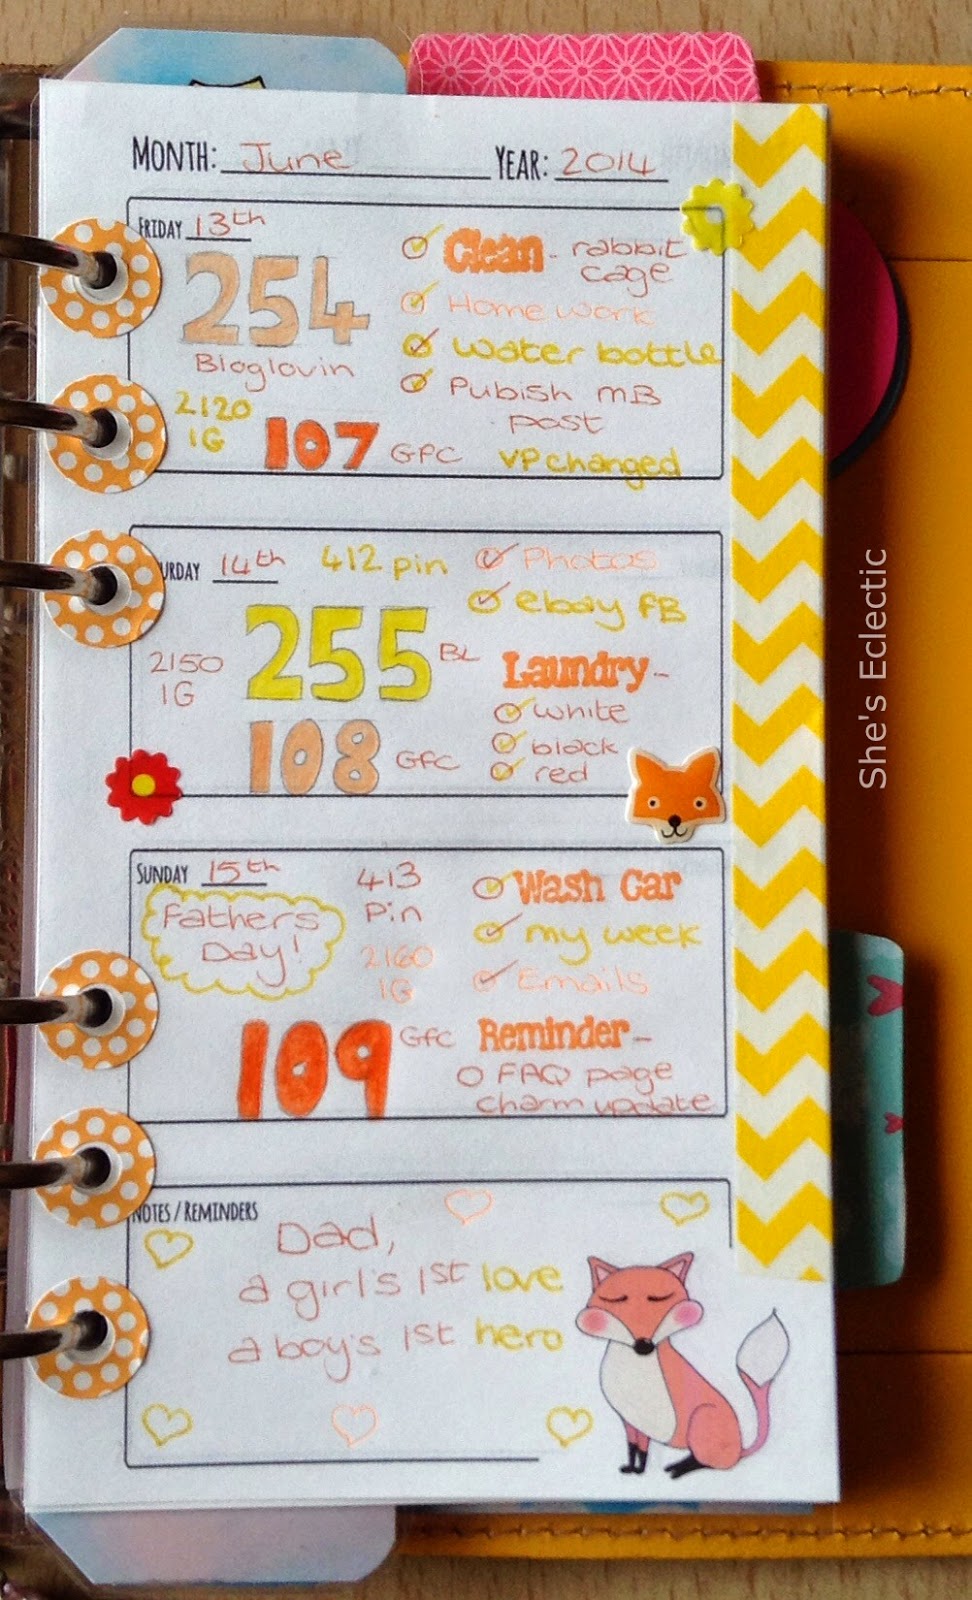 MONTH: June YEAR: 2014
FRIDAY 13th
254
Bloglovin
2120
IG
107 GFC
Clean - rabbit
cage
Home work
water bottle
Pubish MB
post
VP changed
URDAY 14th
412 pin
2150
IG
255 BL
108 GFC
Photos
ebay FB
Laundry -
white
black
red
SUNDAY 15th
Fathers
Day!
413
Pin
2160
IG
109 GFC
Wash Car
my week
Emails
Reminder -
FAQ page
charm update
NOTES / REMINDERS
Dad,
a girl's 1st love
a boy's 1st hero
She's Eclectic